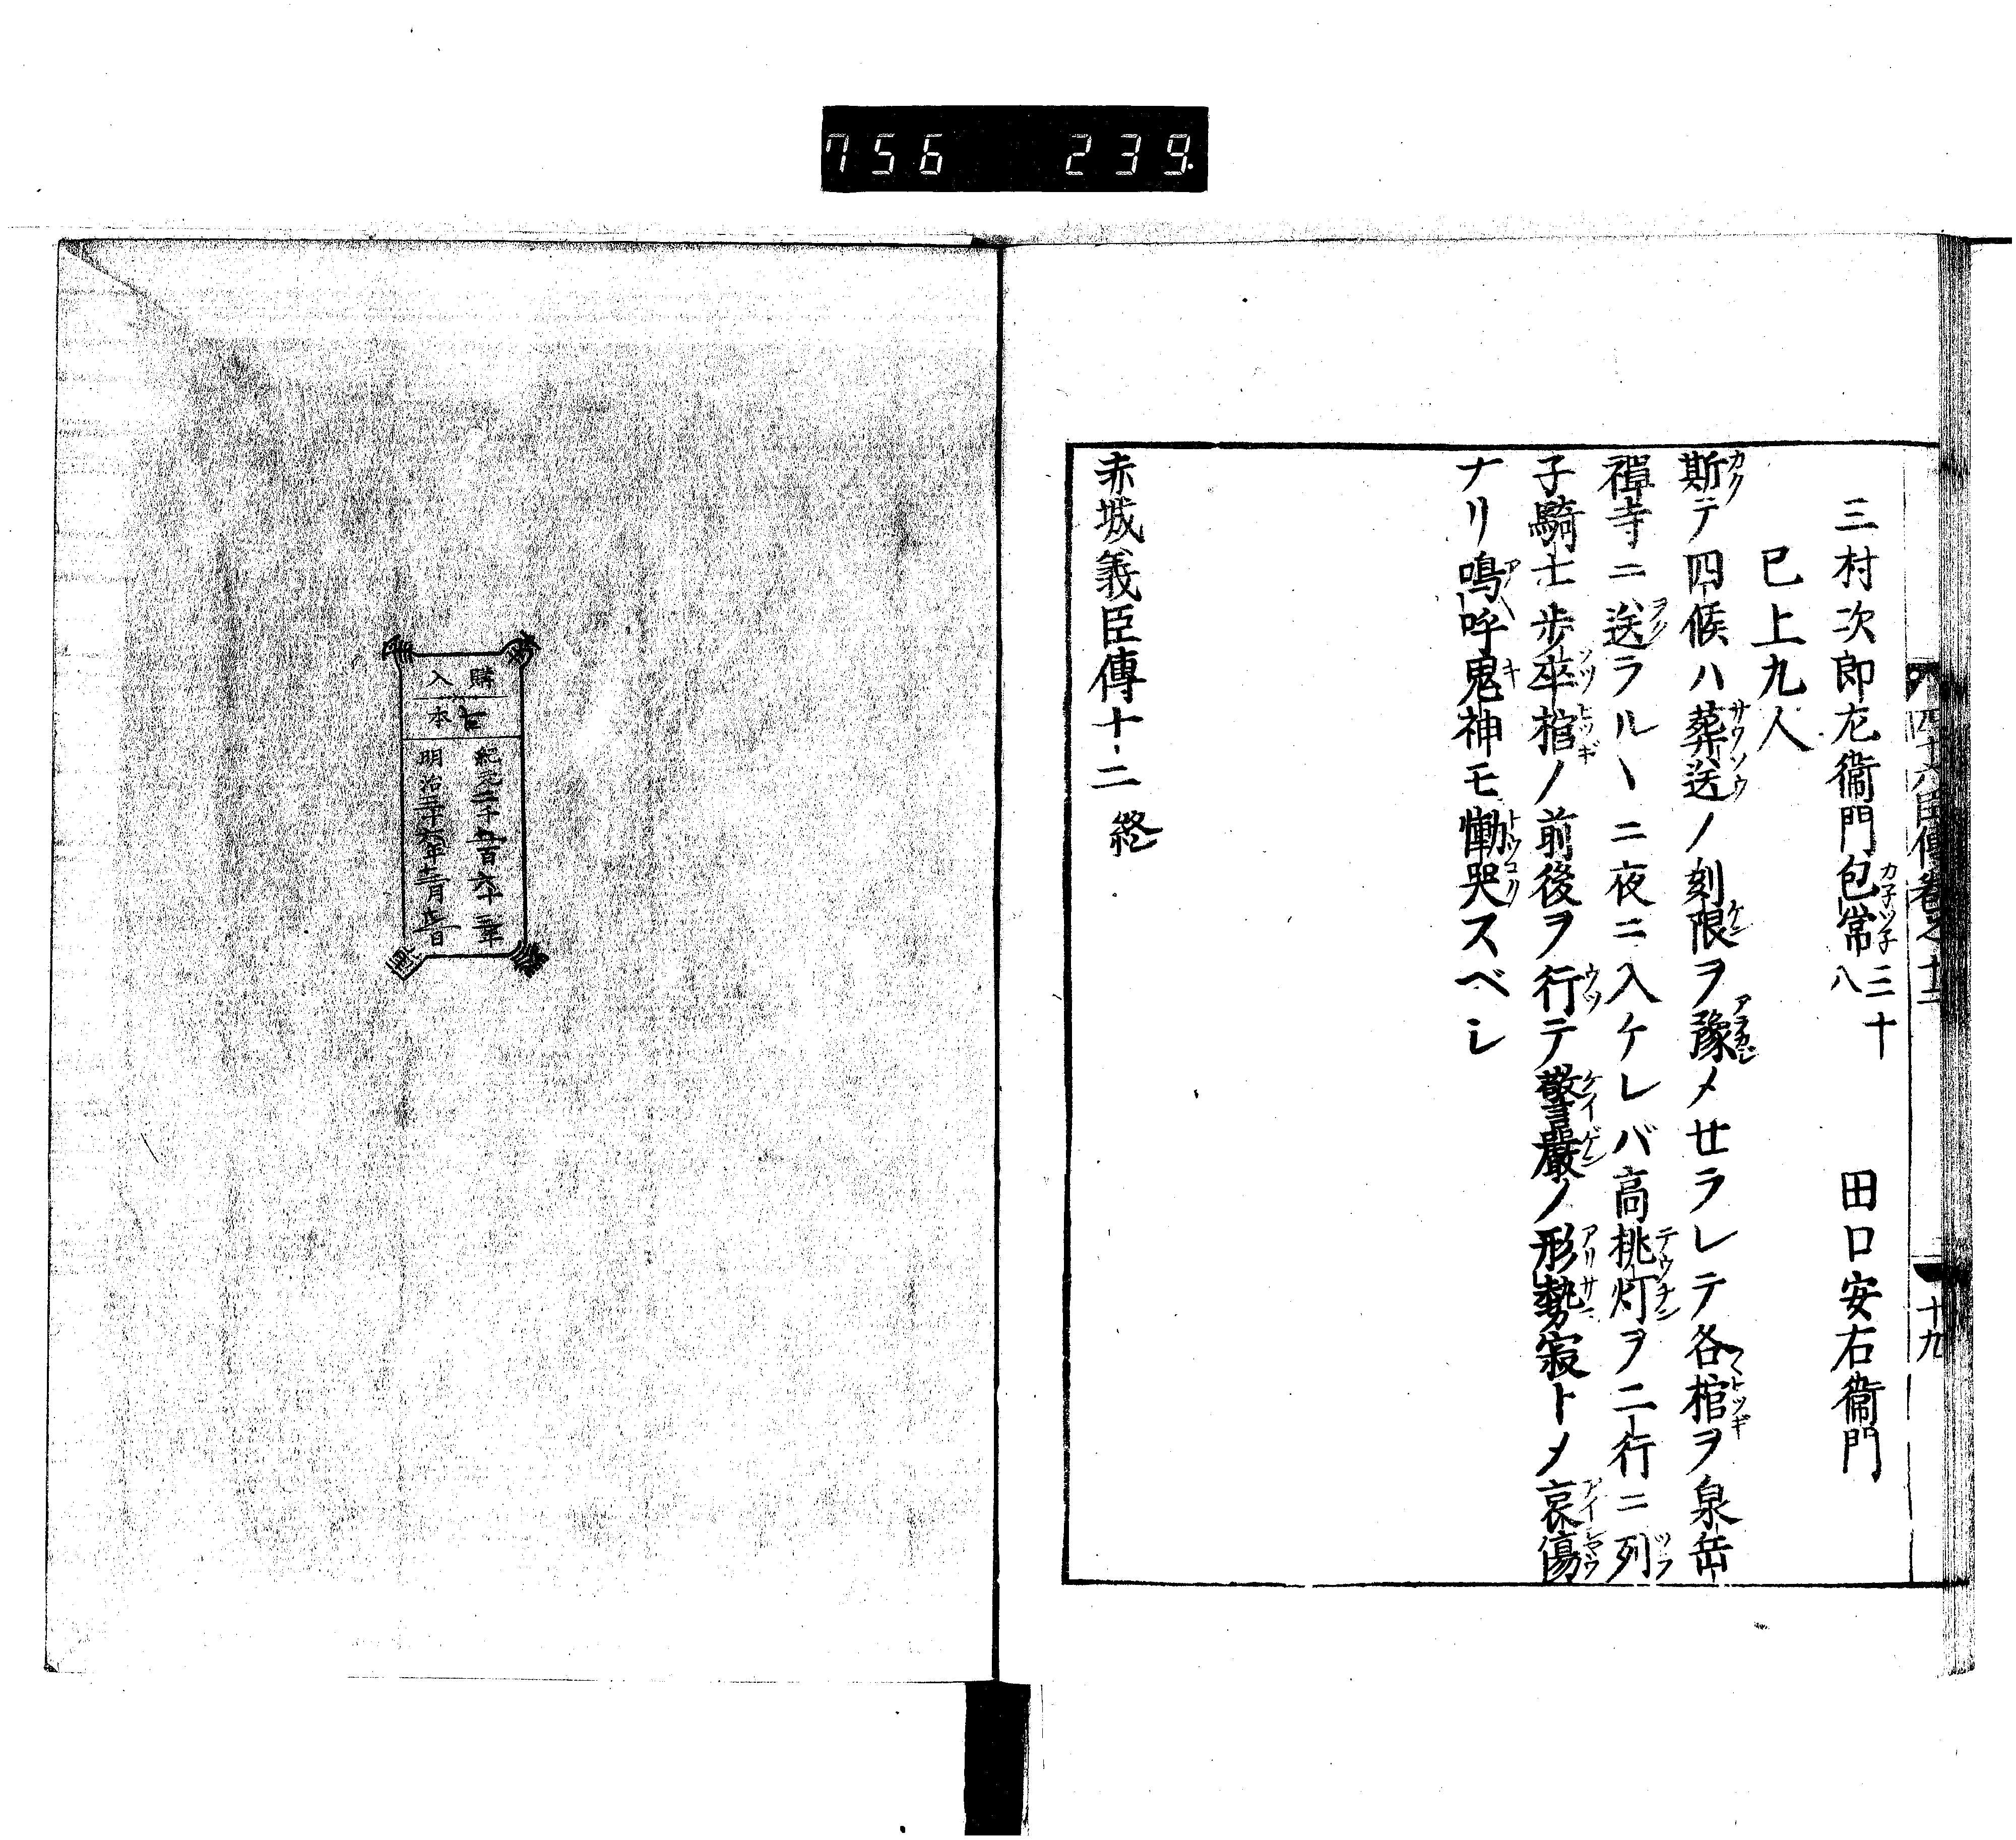 756 239
四十六臣傳卷之十二 十九
三村次郎左衞門包常三十八 田口安右衞門
已上九人
斯テ四候ハ葬送ノ刻限ヲ豫メ廿ラレテ各棺ヲ泉岳
禪寺ニ送ラルヽニ夜ニ入ケレバ高桃灯ヲ二行ニ列
子騎士歩卒棺ノ前後ヲ行テ警嚴ノ形勢寂トメ哀傷
ナリ嗚呼鬼神モ慟哭スベシ
赤城義臣傳十二 終
購入
本
紀元二千五百六十三年
明治三十六年十二月